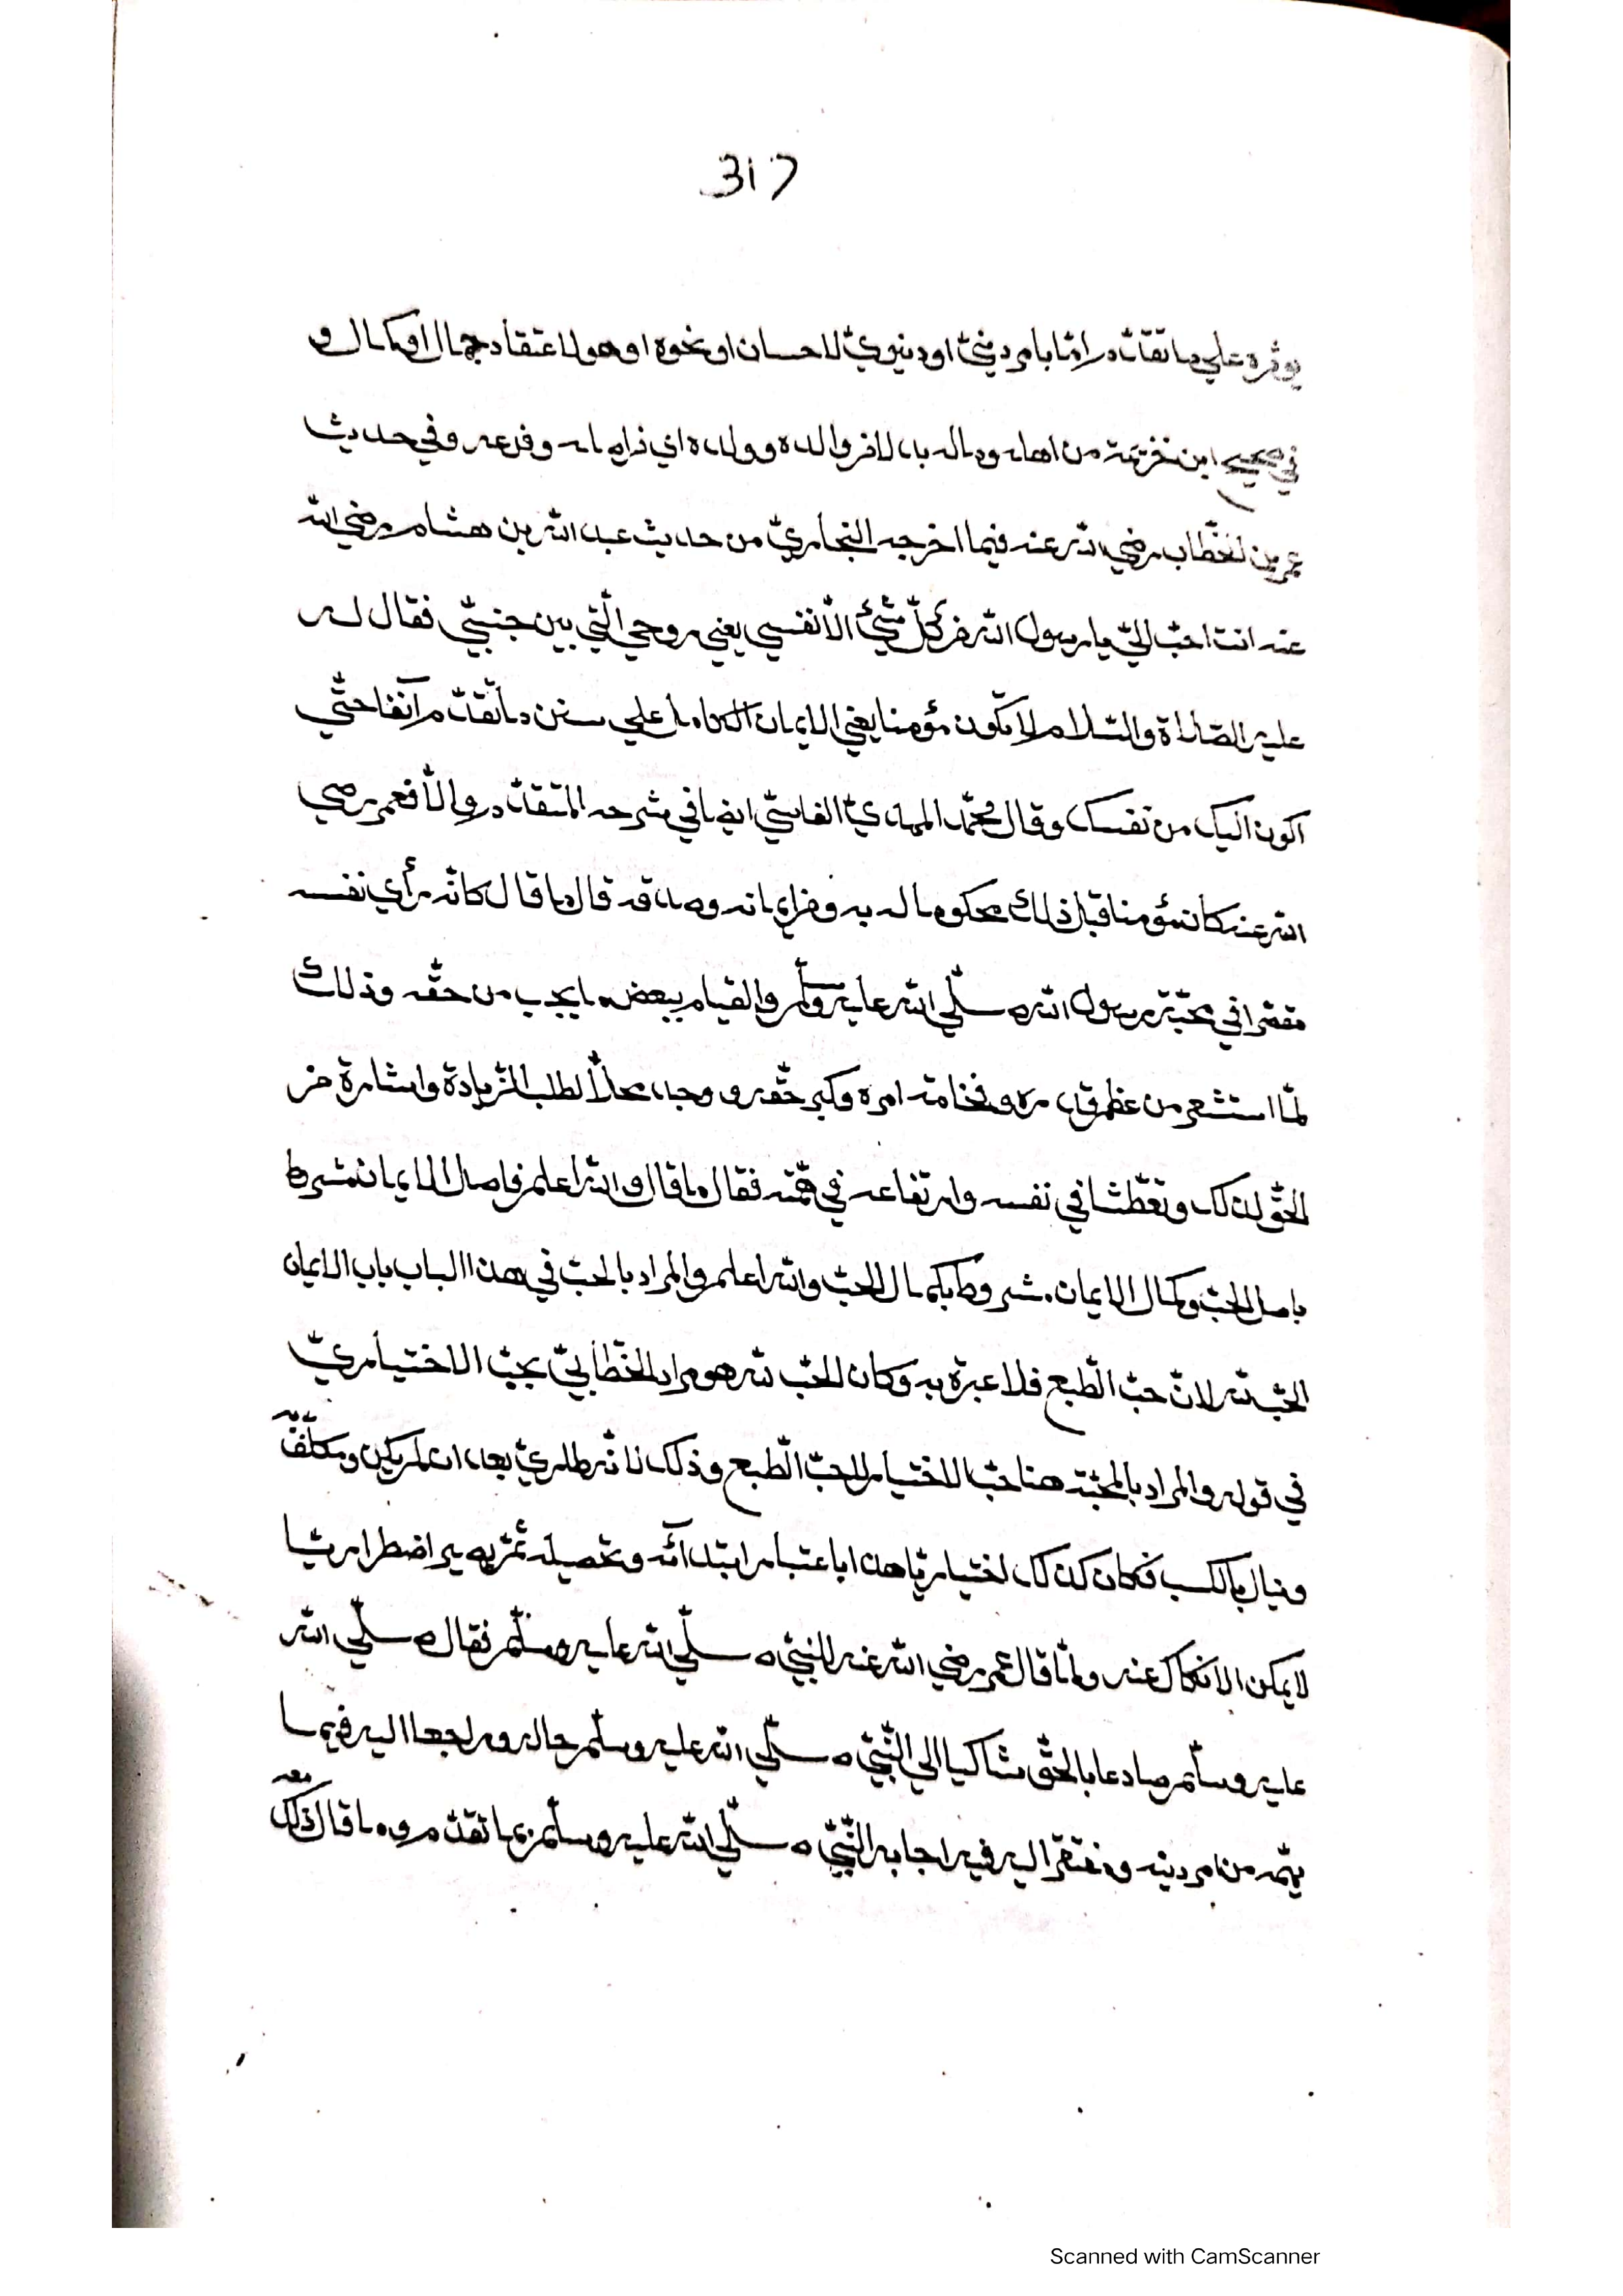 317
يوثره علي ما تقدّم امّا بامر دينيّ او دنيويّ للاحسان او نحوه او هو لاعتقاد جمال او كمال و
في صحيح ابن خزيمة من اهله وماله بدل لافر والده وولده اي ذا اصله وفرعه وفي حديث
عمر بن الخطّاب رضي الله عنه فيما اخرجه البخاريّ من حديث عبد الله بن هشام رضي الله
عنه انت احبّ اليّ يا رسول الله من كلّ شئ الّا نفسي يعني روحي الّتي بين جنبيّ فقال له
عليه الصّلاة والسّلام لا تكون مؤمنا يعني الايمان الكامل علي سنن ما تقدّم آنفا حتّي
اكون اليك من نفسك وقال محمّد المهديّ الفاسيّ ايضا في شرحه المتقدّم والّا فعمر رضي
الله عنه كان مؤمنا قبل ذلك محكوما له به وفر ايمانه وصدقه قال ما قال كانّه رأي نفسه
مقصّرا في محبّة رسول الله صلّي الله عليه وسلّم والقيام ببعض ما يجب من حقّه وذلك
لمّا استشعر من عظم قدره وفخامة امره وكبر حقّه ووجد محلّا لطلب الزّيادة واشارة من
الحقّ لذلك وتعطّشا في نفسه وارتفاعه في همّته فقال ما قال والله اعلم فاصل الايمان مشروط
باصل الحبّ وكمال الايمان مشروط بكمال الحبّ والله اعلم والمراد بالحبّ في هذا الباب باب الايمان
الحبّ لله لانّ حبّ الطّبع فلا عبرة به وكان الحبّ لله هو مراد الخطّابيّ بحبّ الاختياريّ
في قوله والمراد بالمحبّة هنا حبّ الاختيار لا حبّ الطّبع وذلك لانّه طلريّ بعد ان لم يكن ومكلّف به
وينال بالكسب فكان كذلك اختياريّا هذا باعتبار ابتدآئه وتحصيله ثمّ يصير اضطراريّا
لا يمكن الانفكاك عنه ولمّا قال عمر رضي الله عنه للنّبيّ صلّي الله عليه وسلّم فقال صلّي الله
عليه وسلّم صادعا بالحقّ شاكيا الي النّبيّ صلّي الله عليه وسلّم حاله ومراجعا اليه فيما
يهمّه من امر دينه ومفتقرا اليه فيه اجابه النّبيّ صلّي الله عليه وسلّم بما تقدّم وما قال ذلك معه
Scanned with CamScanner